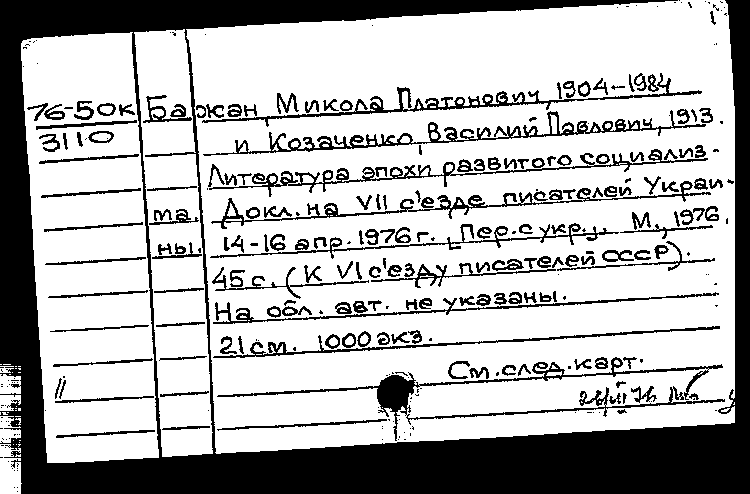 76-50к Бажан, Микола Платонович, 1904-1984
3110 и Козаченко, Василий Павлович, 1913.
Литература эпохи развитого социализ-
ма. Докл. на VII с'езде писателей Украи-
ны. 14-16 апр. 1976 г. [Пер. с укр.]. М., 1976.
45 с. (К VI с'езду писателей СССР).
На обл. авт. не указаны.
21 см. 1000 экз.
См. след. карт.
//